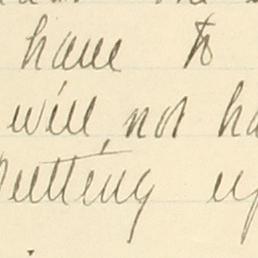 have to
will not ha
Putting up